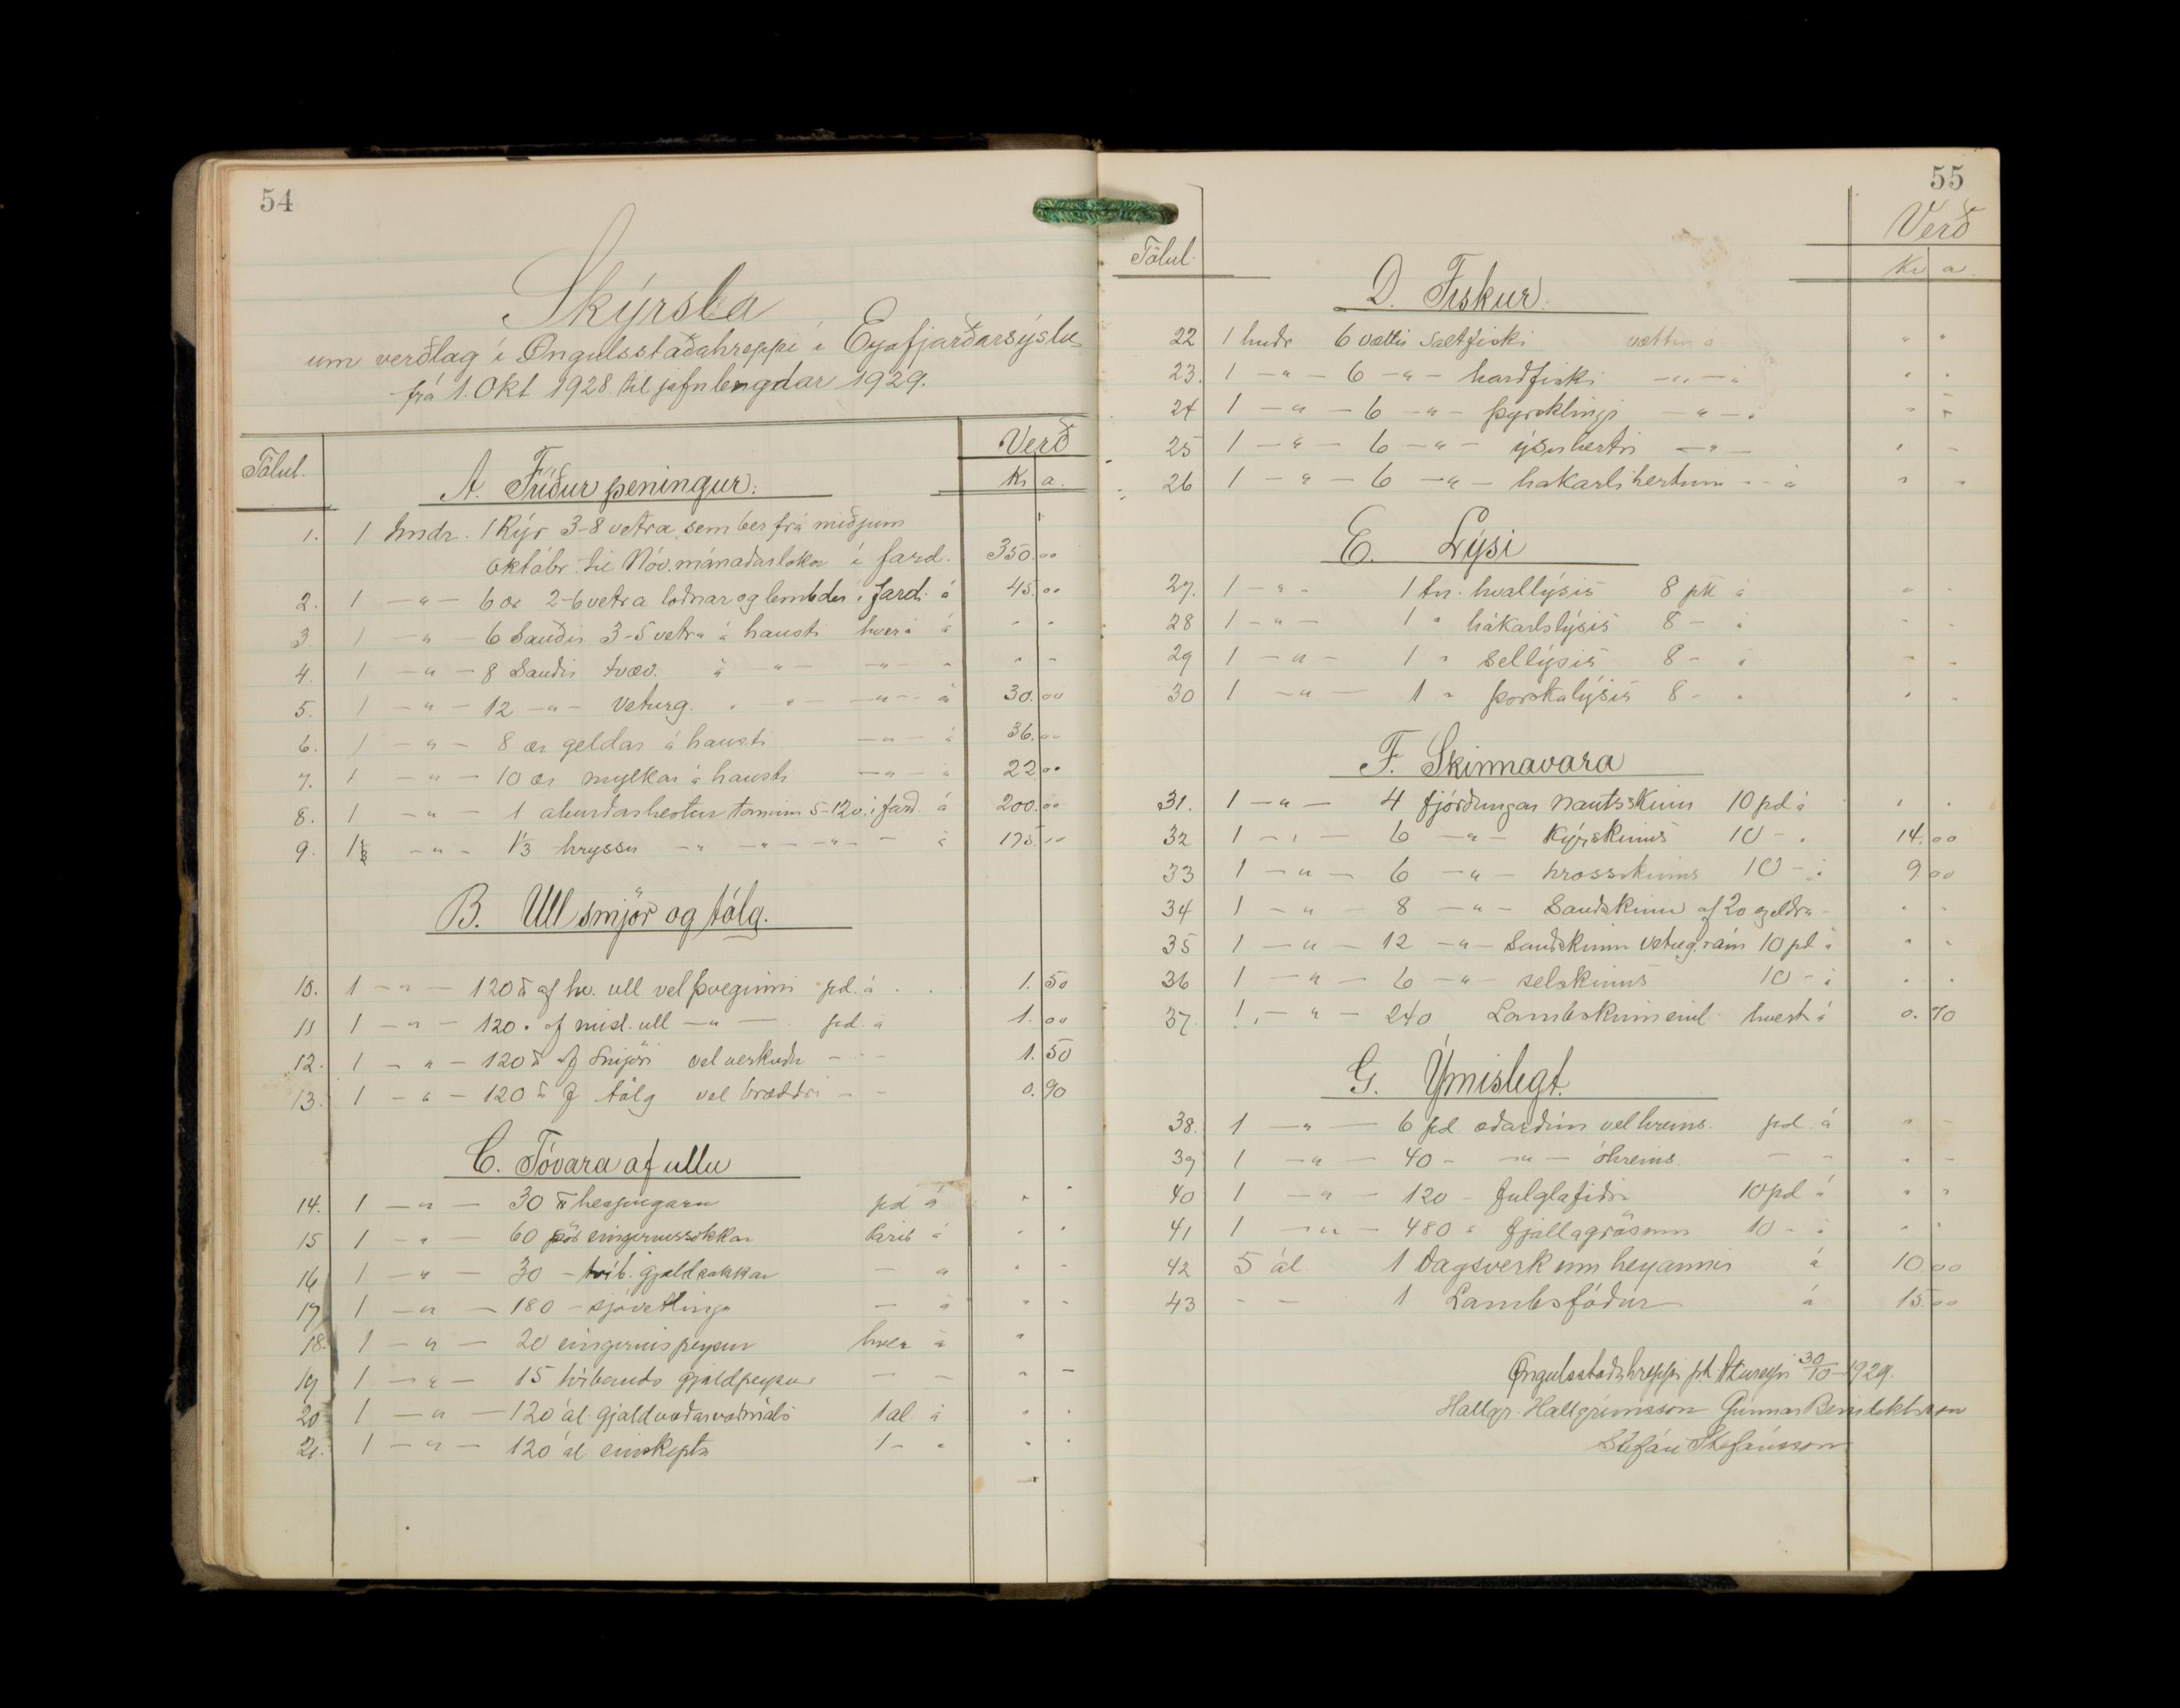 54
Skýrsla
um verðlag í Öngulsstaðahreppi í Eyjafjarðarsýslu
frá 1. Okt 1928 til jafnlengdar 1929.
Tölul. Verð
A. Fríður peningur. Kr a.
1. 1 hndr. 1 Kýr 3-8 vetra, sem ber frá miðjum
októbr. til Nóv.mánaðarloka í fard. 350.00
2. 1 — " — 6 ær 2-6 vetra loðnar og lembdar í fard. á 45.00
3 1 — " — 6 Sauðir 3-5 vetra á hausti hver á á " "
4. 1 — " — 8 Sauðir tvæv. á — " — — " — " " "
5. 1 — " — 12 — " — Veturg. " — " — — " — á 30.00
6. 1 — " — 8 ær geldar á hausti — " — á 36.00
7. 1 — " — 10 ær mylkar á hausti — " — á 22.00
8. 1 — " — 1 áburðarhestur taminn 5-12 v. í fard. á 200.00
9. 1⅓ — " — 1⅓ hryssu — " — " — " — á 175.00
B. Ull smjör og tólg.
10. 1 — " — 120 ℔ af hv. ull vel þveginni pd. á . . 1.50
11 1 — " — 120 " af misl. ull — " — pd. á 1.00
12. 1 — " — 120 ℔ af smjöri vel verkuðu — " — 1.50
13. 1 — " — 120 ℔ af tólg vel bræddri — — 0.90
C. Tóvara af ullu
14. 1 — " — 30 ℔ hespugarn pd á " "
15 1 — " — 60 pör eingirnissokkar parið á " "
16 1 — " — 30 — tvíb. gjaldsokkar — " " —
17 1 — " — 180 — sjóvetlinga — á " "
18. 1 — " — 20 eingirnispeysur hver á "
19 1 — " — 15 tvíbands gjaldpeysur — — " —
20 1 — " — 120 ál. gjaldvoðarvaðmáls 1 al. á " "
21. 1 — " — 120 ál einskepta 1 — " " "
55
Tölul. Verð
Kr a.
D. Fiskur.
22 1 hndr 6 vættir saltfiski vættin á " "
23. 1 — " — 6 — " — harðfiski — " — á " "
24 1 — " — 6 — " — þyrsklingi — " — á " "
25 1 — " — 6 — " — ýsu hertri — " — " —
26 1 — " — 6 — " — hákarli hertum — — á " "
E. Lýsi
27. 1 — " — 1 tn. hvallýsis 8 ptt á " "
28 1 — " — 1 " hákarlslýsis 8 — á " "
29 1 — " — 1 " sellýsis 8 — á " "
30 1 — " — 1 " þorskalýsis 8 — " " "
F. Skinnavara
31. 1 — " — 4 fjórðungar nautsskinn 10 pd á " "
32 1 — " — 6 — " — Kýrskinns 10 — " 14.00
33 1 — " — 6 — " — hrossskinns 10 — á 9 00
34 1 — " — 8 — " — Sauðskinn af 2v geldra — " "
35 1 — " — 12 — " — Sauðskinn veturg. + ám 10 pd á " "
36 1 — " — 6 — " — selskinns 10 — á " "
37. 1 — " — 240 Lambskinn einl. hvert á 0.70
G. Ýmislegt.
38. 1 — " — 6 pd æðardún vel hreins. pd. á " —
39 1 — " — 40 — — " — óhreins. — — " —
40 1 — " — 120 — fuglafiðri 10 pd á " "
41 1 — " — 480 " fjallagrösum 10 — á " "
42 5 ál. 1 Dagsverk um heyannir á 10.00
43 — — 1 Lambsfóður á 15.00
Öngulsstaðahreppi pt Akureyri 30/10 — 1929.
Hallgr. Hallgrímsson Gunnar Benediktsson
Stefán Stefánsson